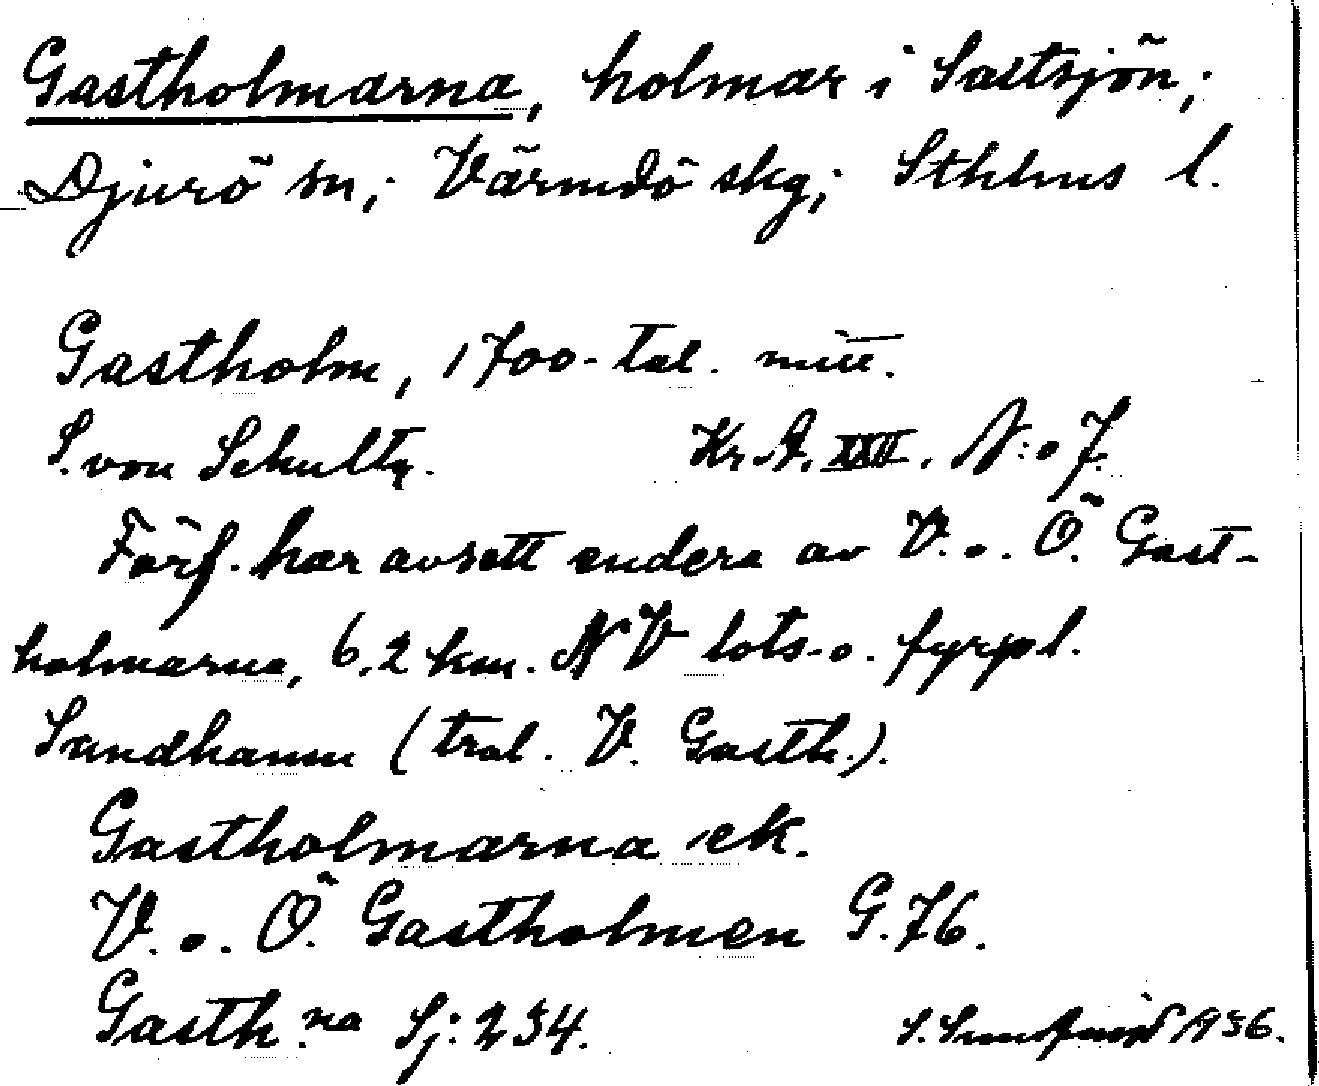 Gastholmarna, holmar i Saltsjön;
Djurö sn; Värmdö skg; Sthlms l.
Gastholm, 1700-tal. mitt.
S. von Schultz. Kr A. XXII. N:o 7.
Förf. har avsett endera av V. o. Ö. Gast-
holmarna, 6.2 km. NV lots-o. fyrpl.
Sandhamn (trol. V. Gasth.).
Gastholmarna ek.
V. o. Ö. Gastholmen G. 76.
Gasth.na Sj: 234.
S. 1936.